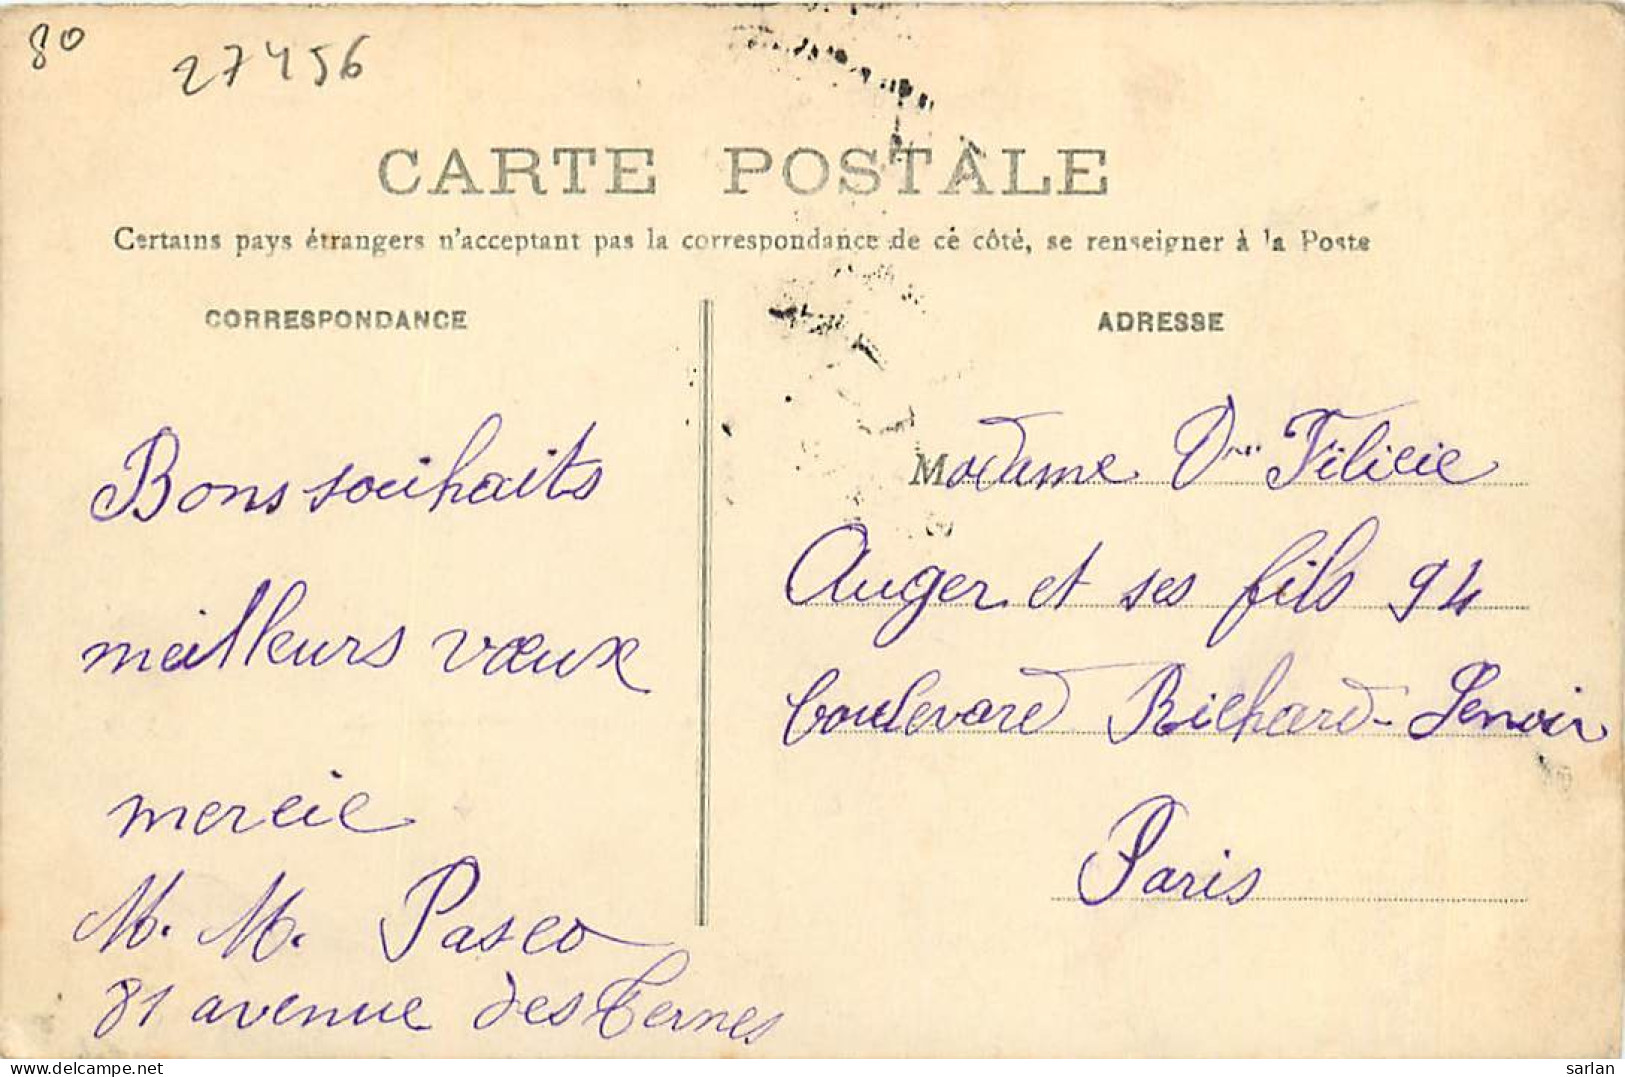 80
27456
CARTE POSTALE
Certains pays étrangers n'acceptant pas la correspondance de ce côté, se renseigner à la Poste
CORRESPONDANCE
Bons souhaits
meilleurs vœux
mercie
M. M. Pasco
81 avenue des Ternes
ADRESSE
Madame Filicie
Auger et ses fils 94
boulevard Richard-Lenoir
Paris
delcampe.net
sarlan